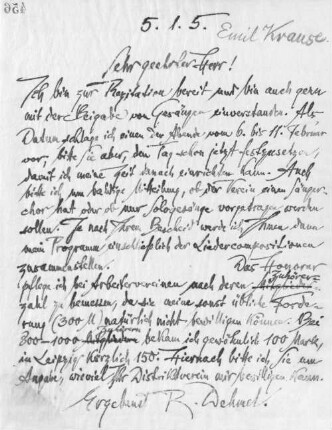 5. 1. 5.
Emil Krause
Sehr geehrter Herr!
Ich bin zur Rezitation bereit und bin auch gern
mit der Beigabe von Gesängen einverstanden. Als
Datum schlage ich einen der Abende vom 6. bis 11. Februar
vor, bitte Sie aber, den Tag schon jetzt festzusetzen,
damit ich meine Zeit danach einrichten kann. Auch
bitte ich um baldige Mitteilung, ob der Verein einen Sänger-
chor hat oder ob nur Sologesänge vorgetragen werden
sollen. Je nach Ihrem Bescheid werde ich Ihnen dann
mein Programm einschließlich der Liedercompositionen
zusammenstellen. Das Honorar
pflege ich bei Arbeitervereinen nach deren Mitglieder Zuhörer-
zahl zu bemessen, da sie meine sonst übliche Forde-
rung (300 M) natürlich nicht bewilligen können. Bei
800-1000 Mitglieder Zuhörern bekam ich gewöhnlich 100 Mark,
in Leipzig kürzlich 150. Hiernach bitte ich Sie um
Angabe, wieviel Ihr Distriktsverein mir bewilligen kann.
Ergebenst R. Dehmel.